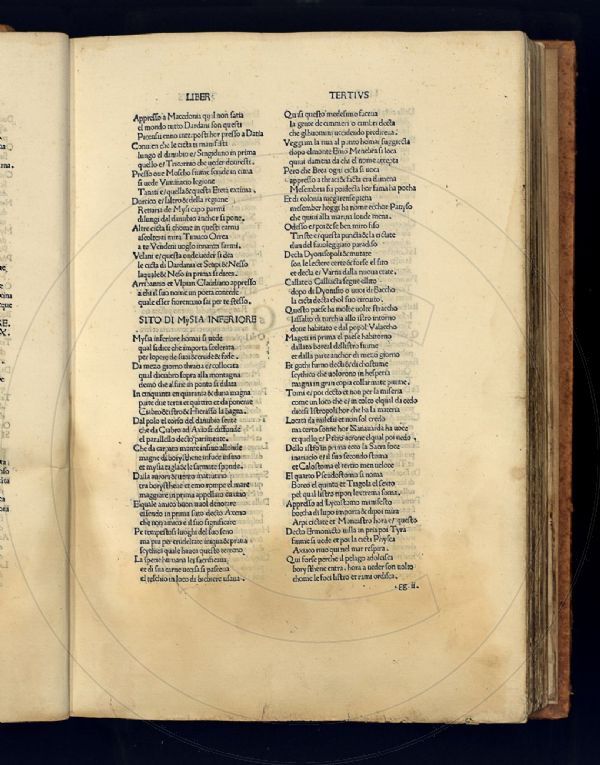 LIBER TERTIVS
Appresso a Macedonia qual non saria
el mondo tutto Dardani son questi
presso a Datia
Conuien che le citta in
lungo el danubio e/ Singiduno in prima
quello e/ che ueder
Presso oue Moscho fiume
si uede legione
e/ quella & questa Etera extima.
Dorrico e/ laltro & della regione
Retiaria de Mysi capo parmi
dilungi dal danubio anchor si pone.
Altre citta si chome in questi carmi
ascolterai mira Orrea
a te Vendeni uoglio
Velani e/ questa onde ueder si dea
le citta di Dardania et Scupi & Nesso
laquale & Neso in prima si dicea.
Arribantio et Vlpian Claudiano appresso
a chi il suo nome un poeta concede
quale esser fiorentino sai per te stesso.
SITO DI MYSIA INFERIORE
Mysia inferiore homai si uede
qual iudice che importa scelerata
per lopere de suoi & fede.
Da mezo giorno thracia e/ collocata
qual dicemo sopra alla montagna
al fine in ponto si dilata
In cinquanta en quaranta & dura magna
parte due terza et quinto et da ponente
la bagna.
Dal polo el corso del danubio sente
che da Ciabro ad Axio si diffonde
el parallelo decto parimente.
Che da chapato monte infino allonde
magne di borysthene infuse infino
et mysia et glace le sarmate sponde.
Dalla aurora & uento matutino
tra borysthene et emo rompe el mare
maggiore in prima appellato euxino
Elquale amico buon uuol denotare
essendo in prima stato decto Axeno
che non amico e il suo significare
Pe tempestosi luoghi del suo seno
ma piu per crudelitate iniqua & prima
scythici quale hauea questo terreno
La spetie humana lei sacrificaua
et di sua carne uccisa si pasceua
el teschio in loco di bichiere usaua.
Qui si questo medesimo faceua
la gente de cimmeri o cimbri decta
che glhuomini uccidendo prediceua.
Veggiam la riua al punto homai suggecta
dopo elmonte Emo Menebria si loca
quiui diamena da chi el nome accepta
Pero che Brea ogni citta si uoca
appresso a thraci & facta era diamena
Mesembria fu poi decta hor fama ha pocha
Et di colonia megarense piena
mesember hoggi ha nome
che quini alla marina londe mena.
Odesso e/ poi & se ben miro fiso
Tiriste e/ questa puncta & la citate
dun del fauoleggiato paradiso
Decta Dyonisopoli & mutare
son le lectere certe & forse el sito
et decta e/ Varna dalla nuoua etate.
Callate o Callatia segue allito
dopo di Dyonisio o uuoi di Baccho
la citta decta chol suo circuito.
Questo paese ha molte uolte straccho
lassalto di turchia allo istro intorno
doue habitato e dal popol Valaccho
Mageti in prima el paese habitorno
dallato boreal dellistro fiume
et dalla parte anchor di mezo giorno
Et gothi furno decti & da chostume
scythico che uolorono in hesperia
magna in gran copia collarmate piume.
Tomi e/ poi decto et non per la miseria
come un loco che e/ in colco elqual da cedo
dicesi Istropoli hor che ha la materia
Locata da milesii et non sol credo
ma certo sonne hor Zanauarda ha uoce
et quello e/ Ponto axeno el qual poi uedo.
Dello istro in prima ecco la Sacra foce
Inariacio e/ il suo secondo stoma
et Calostoma el tertio men ueloce
El quarto Pseudostoma si noma
Boreo el quinto et Tiagola el sexto
pel qual listro ripon lextrema soma.
Appresso ad Lycostomo manifesto
boccha di lupo importa & dipoi mira
Arpi citate et Monastro hora e/ questo
Decto Ermonacto uilla in pria poi Tyra
fiume si uede et poi la citta Physca
Axiaco rino qui nel mar respira.
Qui forse perche il pelago adolcisca
borysthene entra. hora a ueder son uolto
chome le foci listro et euro ordisca.
.gg ii.